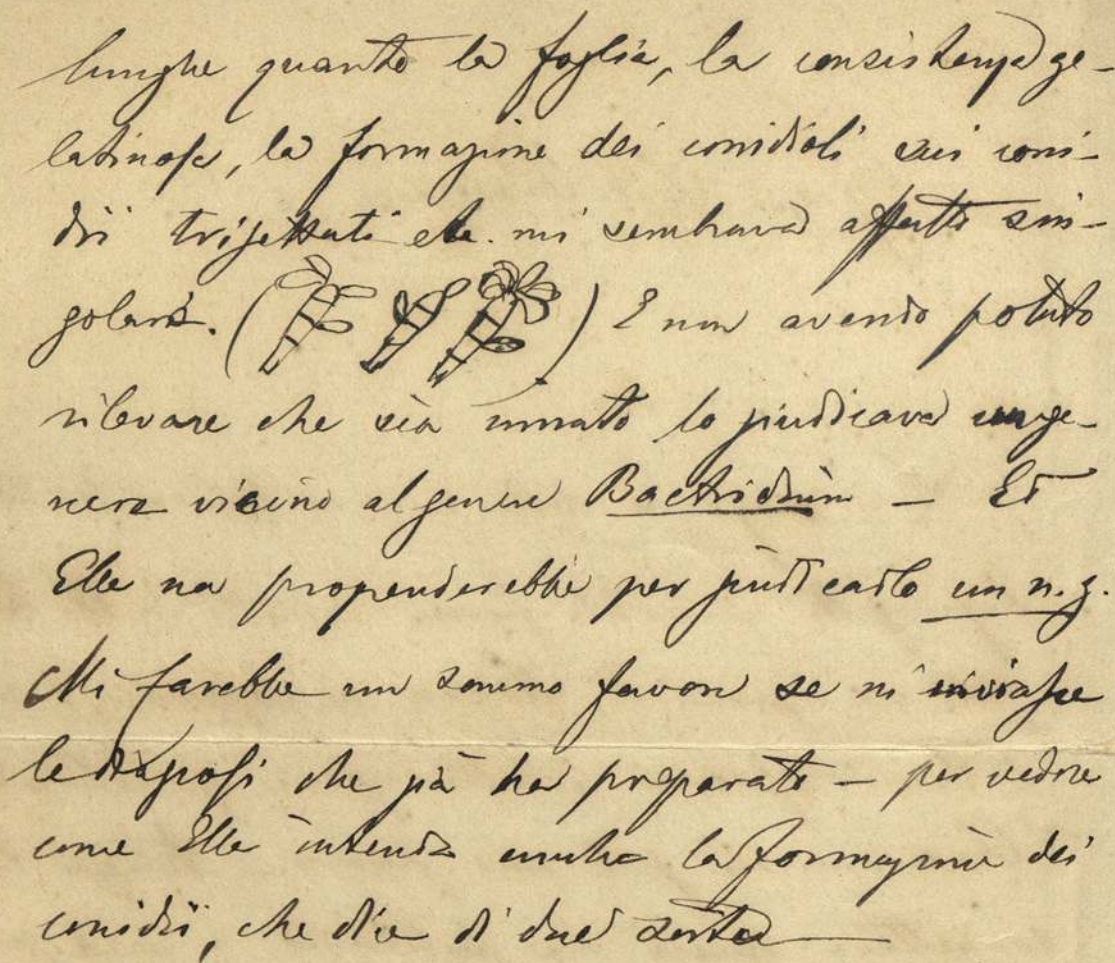 lunghe quanto la foglia, la consistenza ge-
latinosa, la formazione dei conidioli sui coni-
dii trisettati etc. mi sembrava affatto sin-
golare. ( ) E non avendo potuto
rilevare che sia innato lo giudicava un ge-
nere vicino al genere Bactridium — Ed
Ella ne propenderebbe per giudicarlo un n. g.
Mi farebbe un sommo favore se mi inviasse
le diagnosi che già ha preparato — per vedere
come Ella intenda anche la formazione dei
conidii, che dice di due sorta